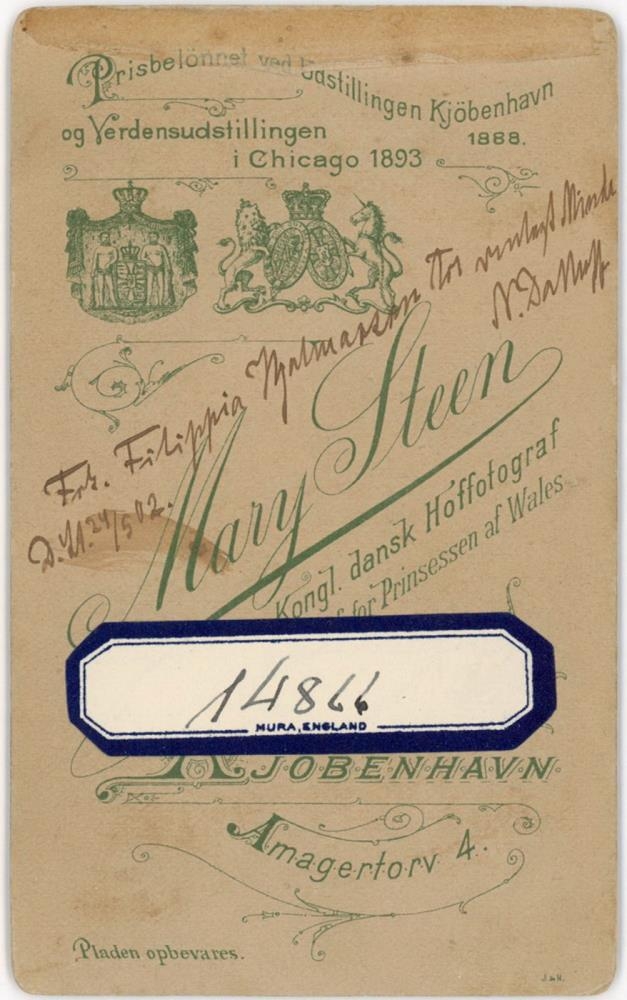 Prisbelönnet ved Udstillingen Kjöbenhavn
1888.
og Verdensudstillingen
i Chicago 1893
Frk. Filippia Hjalmarsen
D. 24/5 02.
Mary Steen
Kongl. dansk Hoffotograf
for Prinsessen af Wales
14866
MURA, ENGLAND
KJOBENHAVN
Amagertorv 4.
Pladen opbevares.